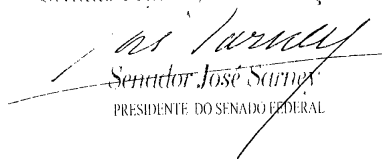 José Sarney
Senador José Sarney
PRESIDENTE DO SENADO FEDERAL